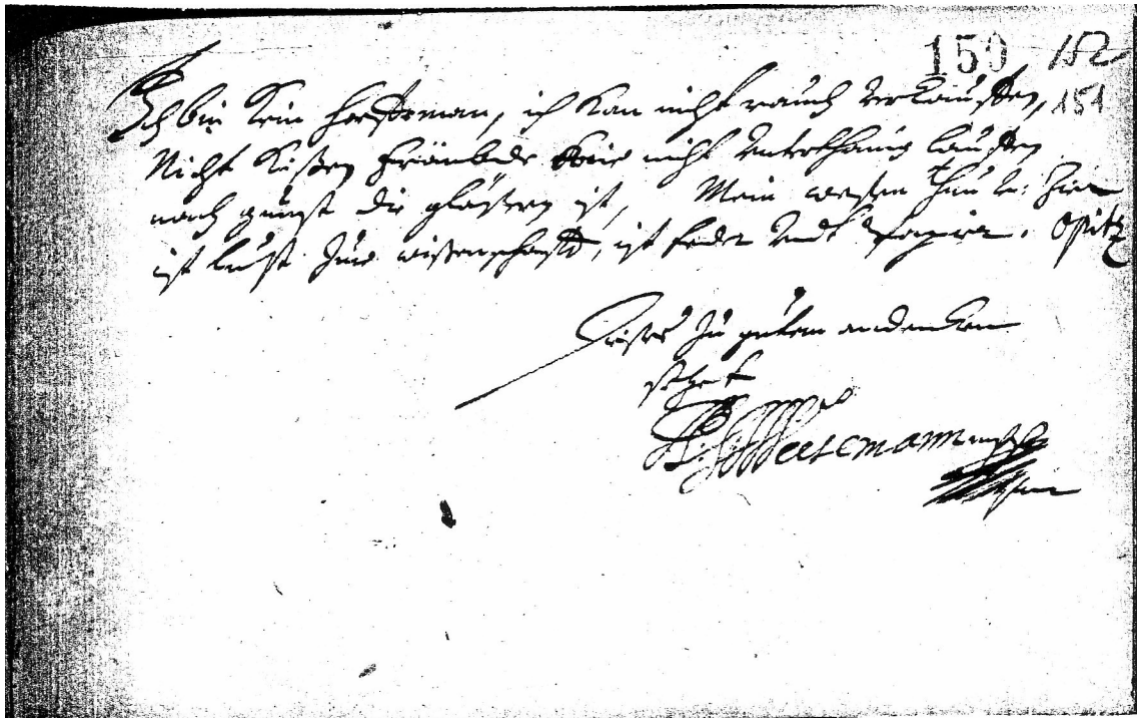 150 152
151
Ich bin kein hoffeman, ich kan nicht rauch verkauffen,
Nicht küßen frömbde knie nicht unterthänig lauffen
nach gunst die gläsern ist, Mein wesen thun u: Zier
ist lust zur wißenschafft, ist feder undt papier. Opitz
Dieses zu gutem andencken
setzet